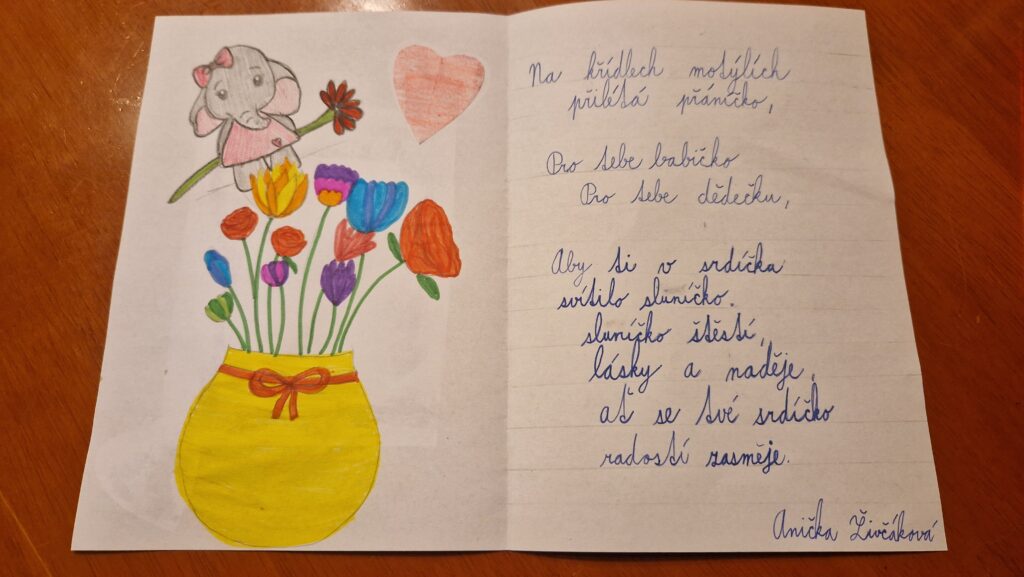 Na křídlech motýlích
přilétá přáníčko,
Pro tebe babičko
Pro tebe dědečku,
Aby ti v srdíčka
svítilo sluníčko.
sluníčko štěstí,
lásky a naděje,
ať se tvé srdíčko
radostí zasměje.
Anička Živčáková